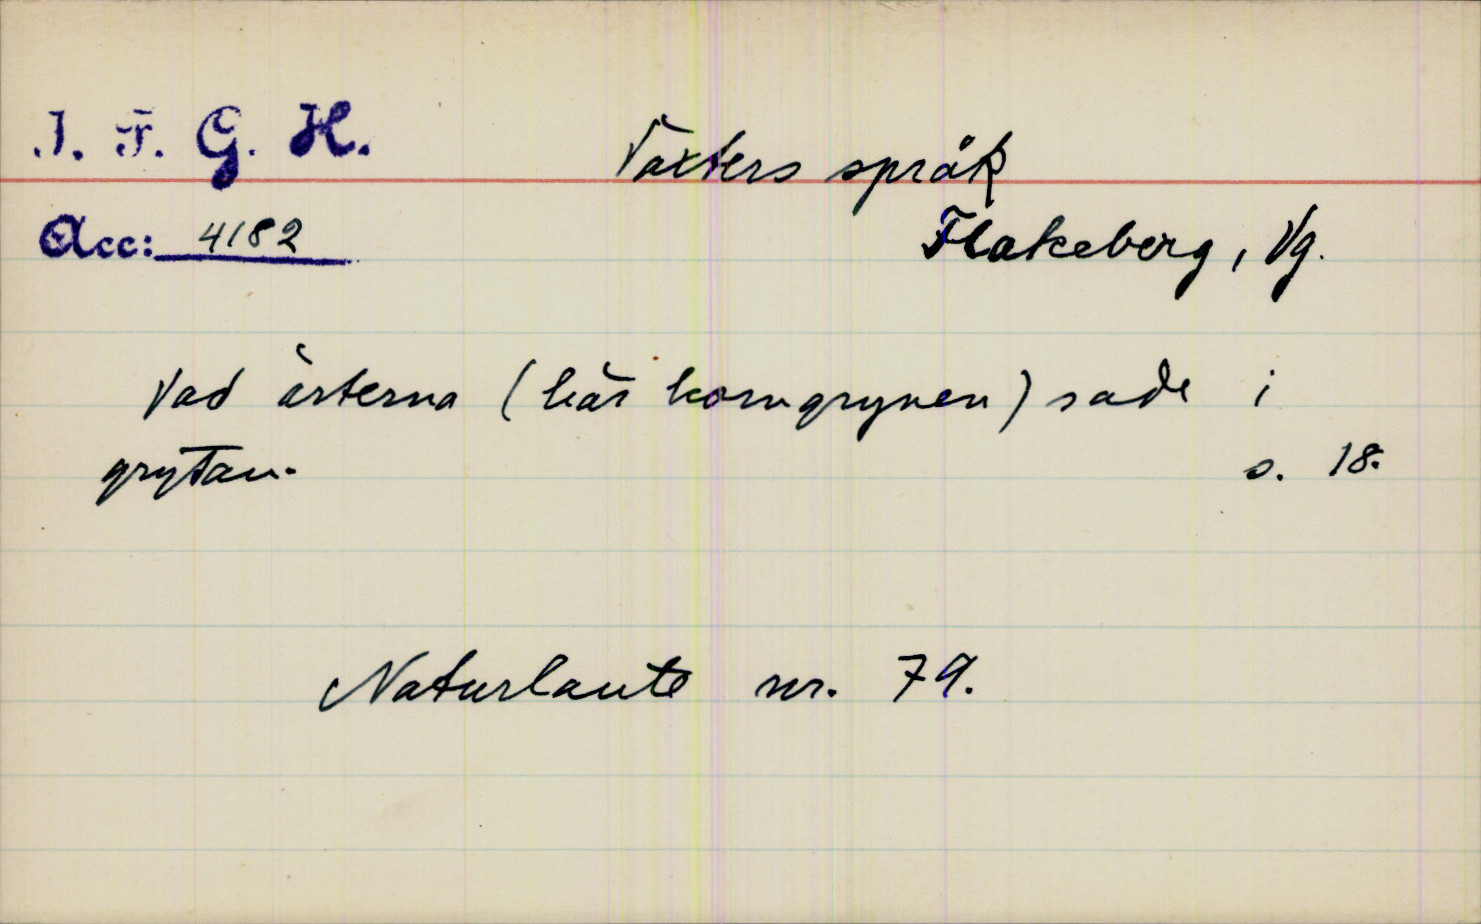 I. F. G. H.
Växters språk
Acc: 4182
Flakeberg, Vg.
Vad ärterna (här korngrynen) sade i
grytan.
s. 18.
Naturlaute nr. 79.